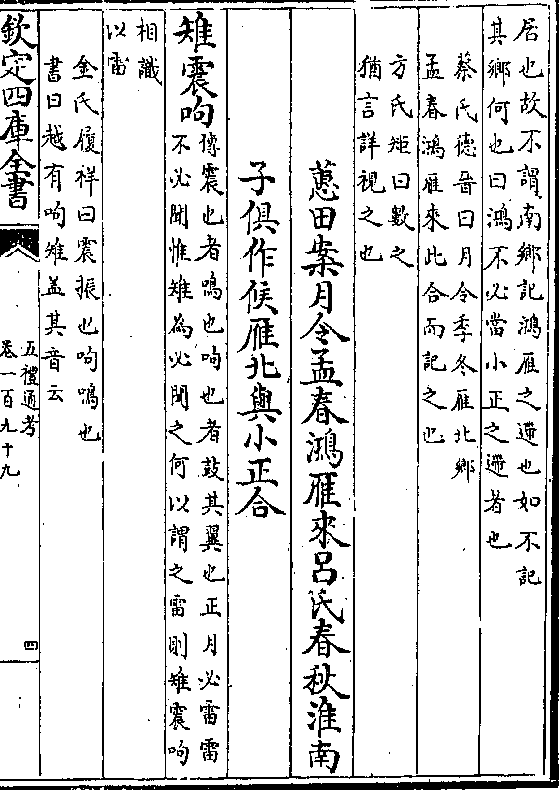 居也故不謂南鄉記鴻雁之遰也如不記
其鄉何也曰鴻不必當小正之遰者也
蔡氏德晉曰月令季冬雁北鄉
孟春鴻雁來此合而記之也
方氏矩曰數之
猶言詳視之也
蕙田案月令孟春鴻雁來呂氏春秋淮南
子俱作候雁北與小正合
雉震呴
傳震也者鳴也呴也者鼓其翼也正月必雷雷
不必聞惟雉為必聞之何以謂之雷則雉震呴
相識
以雷
金氏履祥曰震振也呴鳴也
書曰越有呴雉盖其音云
欽定四庫全書
五禮通考
卷一百九十九
四